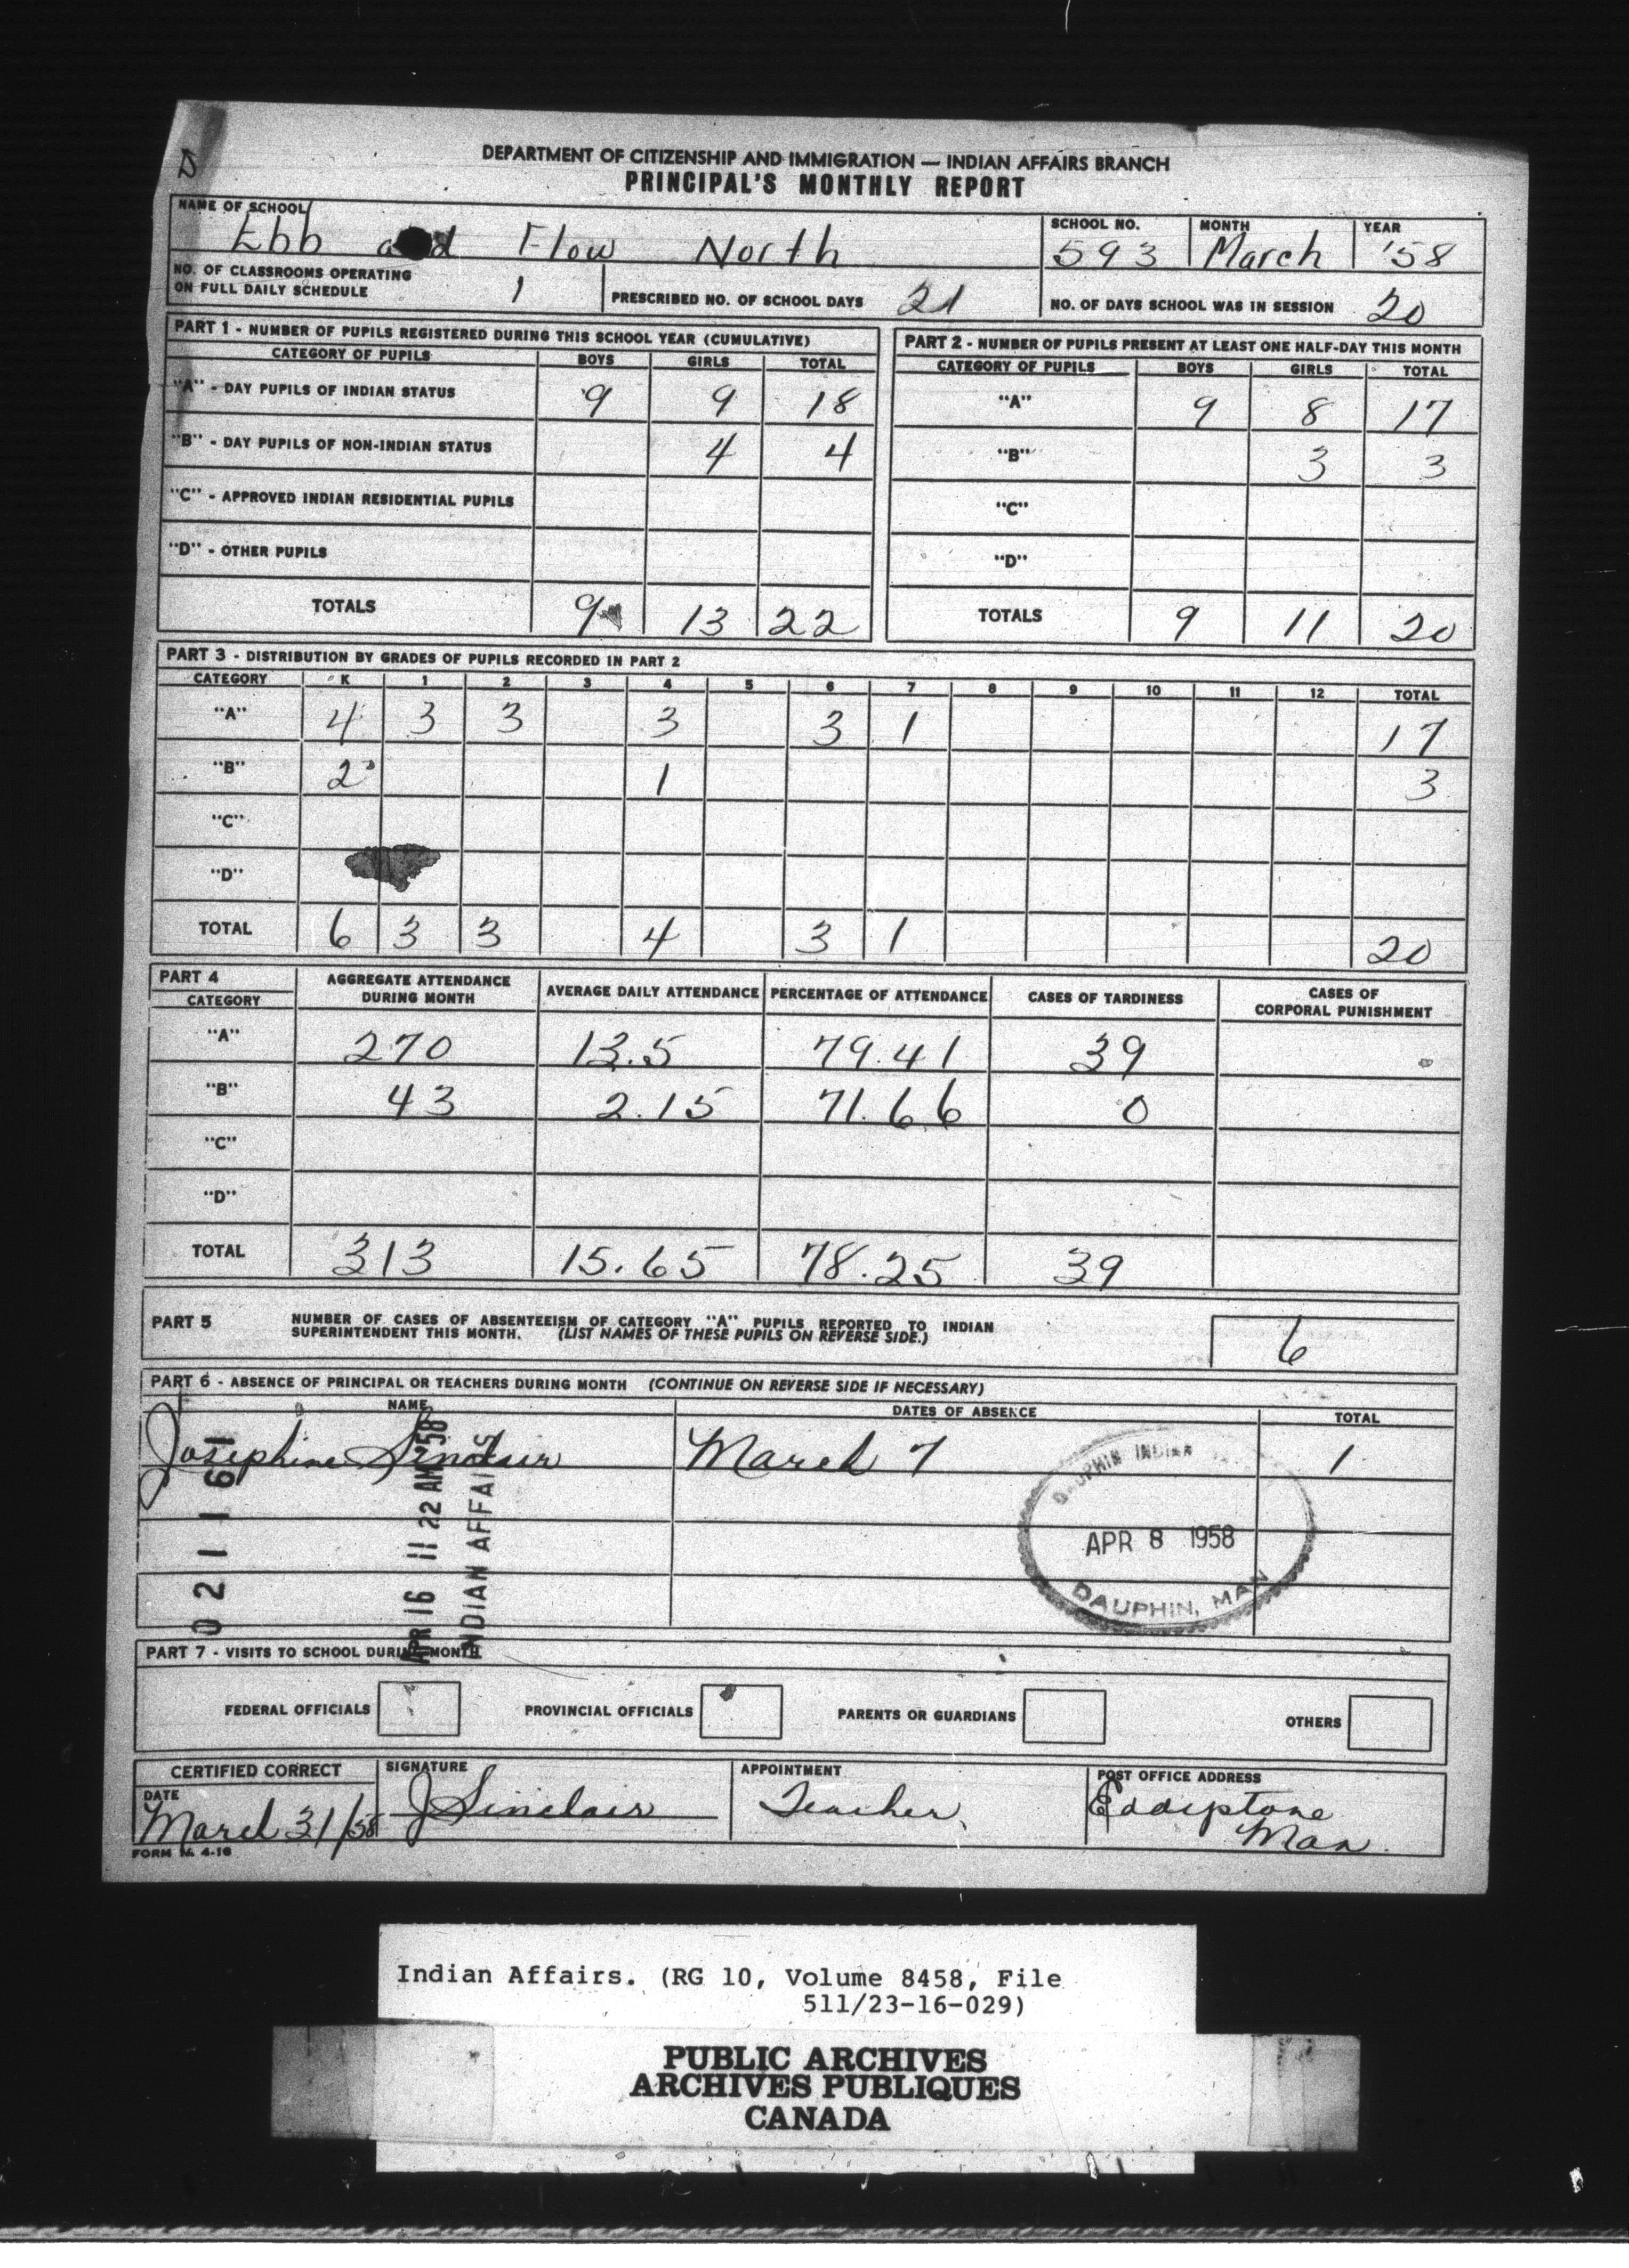 DEPARTMENT OF CITIZENSHIP AND IMMIGRATION — INDIAN AFFAIRS BRANCH
PRINCIPAL'S MONTHLY REPORT
NAME OF SCHOOL SCHOOL NO. MONTH YEAR
Ebb and Flow North 593 March '58
NO. OF CLASSROOMS OPERATING
ON FULL DAILY SCHEDULE 1 PRESCRIBED NO. OF SCHOOL DAYS 21 NO. OF DAYS SCHOOL WAS IN SESSION 20
PART 1 - NUMBER OF PUPILS REGISTERED DURING THIS SCHOOL YEAR (CUMULATIVE)
CATEGORY OF PUPILS BOYS GIRLS TOTAL
"A" - DAY PUPILS OF INDIAN STATUS 9 9 18
"B" - DAY PUPILS OF NON-INDIAN STATUS 4 4
"C" - APPROVED INDIAN RESIDENTIAL PUPILS
"D" - OTHER PUPILS
TOTALS 9 13 22
PART 2 - NUMBER OF PUPILS PRESENT AT LEAST ONE HALF-DAY THIS MONTH
CATEGORY OF PUPILS BOYS GIRLS TOTAL
"A" 9 8 17
"B" 3 3
"C"
"D"
TOTALS 9 11 20
PART 3 - DISTRIBUTION BY GRADES OF PUPILS RECORDED IN PART 2
CATEGORY K 1 2 3 4 5 6 7 8 9 10 11 12 TOTAL
"A" 4 3 3 3 3 1 17
"B" 2 1 3
"C"
"D"
TOTAL 6 3 3 4 3 1 20
PART 4
CATEGORY AGGREGATE ATTENDANCE DURING MONTH AVERAGE DAILY ATTENDANCE PERCENTAGE OF ATTENDANCE CASES OF TARDINESS CASES OF CORPORAL PUNISHMENT
"A" 270 13.5 79.41 39
"B" 43 2.15 71.66 0
"C"
"D"
TOTAL 313 15.65 78.25 39
PART 5 NUMBER OF CASES OF ABSENTEEISM OF CATEGORY "A" PUPILS REPORTED TO INDIAN
SUPERINTENDENT THIS MONTH. (LIST NAMES OF THESE PUPILS ON REVERSE SIDE.) 6
PART 6 - ABSENCE OF PRINCIPAL OR TEACHERS DURING MONTH (CONTINUE ON REVERSE SIDE IF NECESSARY)
NAME DATES OF ABSENCE TOTAL
Josephine Sinclair March 7 1
APR 16 11 22 AM '58
INDIAN AFFAIRS
DAUPHIN INDIAN
APR 8 1958
DAUPHIN, MAN
PART 7 - VISITS TO SCHOOL DURING MONTH
FEDERAL OFFICIALS PROVINCIAL OFFICIALS PARENTS OR GUARDIANS OTHERS
CERTIFIED CORRECT SIGNATURE APPOINTMENT POST OFFICE ADDRESS
DATE
March 31/58 J Sinclair Teacher Eddystone
Man.
FORM IA 4-16
Indian Affairs. (RG 10, Volume 8458, File
511/23-16-029)
PUBLIC ARCHIVES
ARCHIVES PUBLIQUES
CANADA